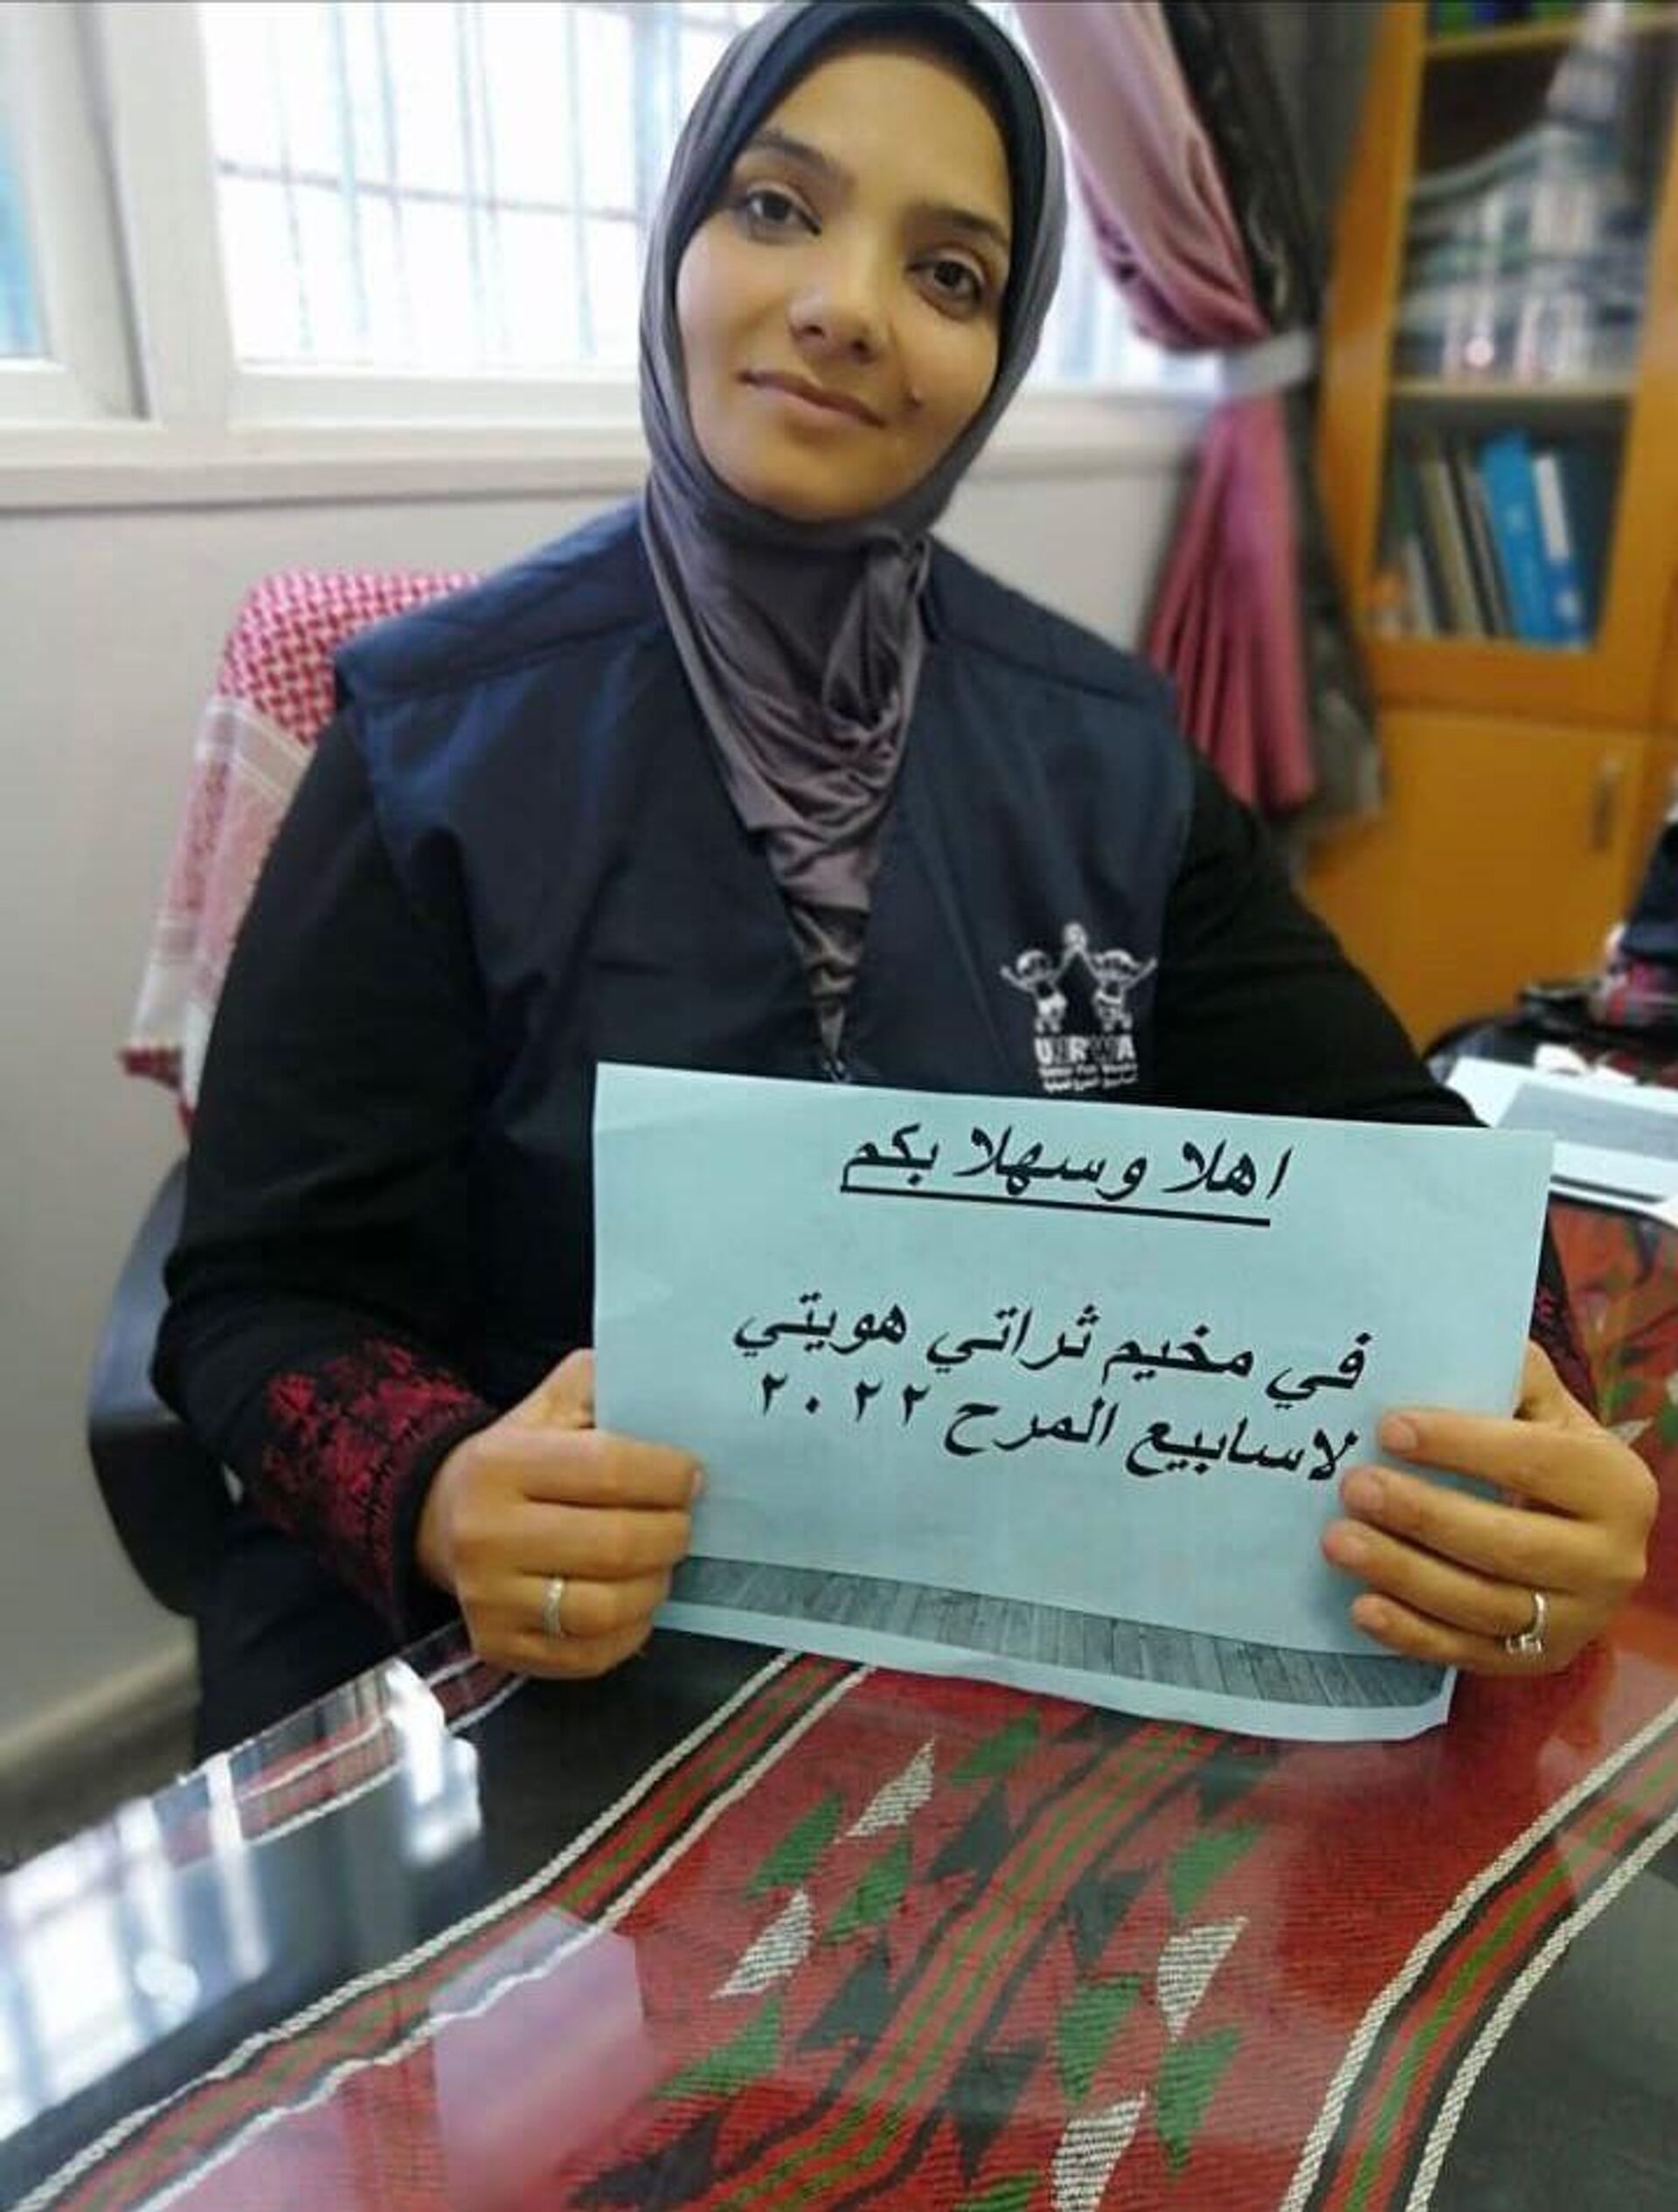 UNRWA
اهلا وسهلا بكم
في مخيم ثراتي هويتي
لاسابيع المرح ٢٠٢٢